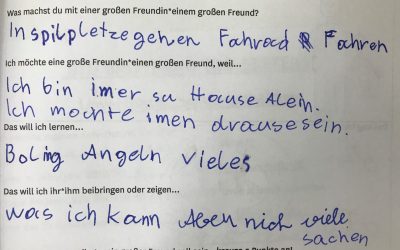 Was machst du mit einer großen Freundin*einem großen Freund?
Inspilpletzegehen Fahrad Fahren
Ich möchte eine große Freundin*einen großen Freund, weil...
Ich bin imer su Hause Alein.
Ich mochte imen drausesein.
Das will ich lernen...
Boling Angeln vieles
Das will ich ihr*ihm beibringen oder zeigen...
was ich kann Aben nich viele
sachen